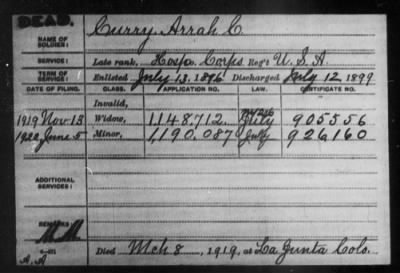 DEAD.
NAME OF SOLDIER: Curry, Arrah C.
SERVICE: Late rank, Hosp. Corps Reg't U.S.A.
TERM OF SERVICE: Enlisted July 13, 1896 Discharged July 12 1899
DATE OF FILING. CLASS. APPLICATION NO. LAW. CERTIFICATE NO.
Invalid,
1919 Nov 13 Widow, 1,148,712. July 905556
1922 June 5 Minor, 1,190,087 July 926160
ADDITIONAL SERVICES:
REMARKS
A.A
Died Mch 8, 1919, at La Junta Colo.